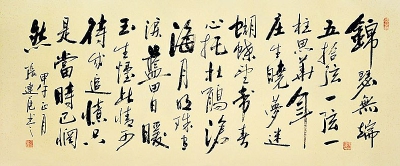 錦瑟無端
五拾弦一弦一
柱思華年
莊生曉夢迷
蝴蝶望帝春
心托杜鵑滄
海月明珠有
淚藍田日暖
玉生煙此情可
待成追憶只
是當時已惘
然
甲午正月